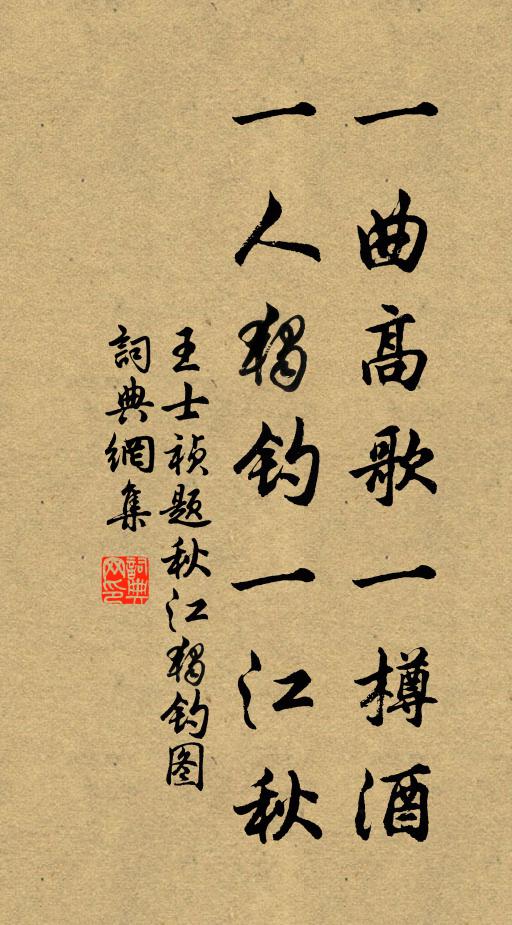 一曲高歌一樽酒
一人獨钓一江秋
王士祯题秋江獨钓图
詞典網集
詞典
网印